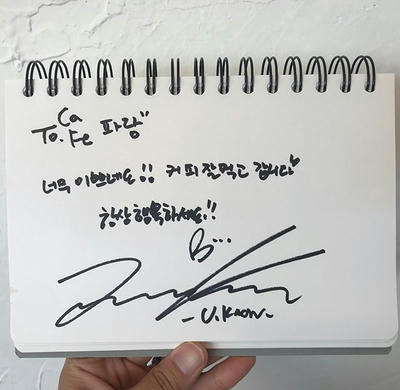 To. Ca Fe 파랑
너무 이쁘네요!! 커피 잘먹고 갑니다♥
항상 행복하세요!!
B...
- U.Know -